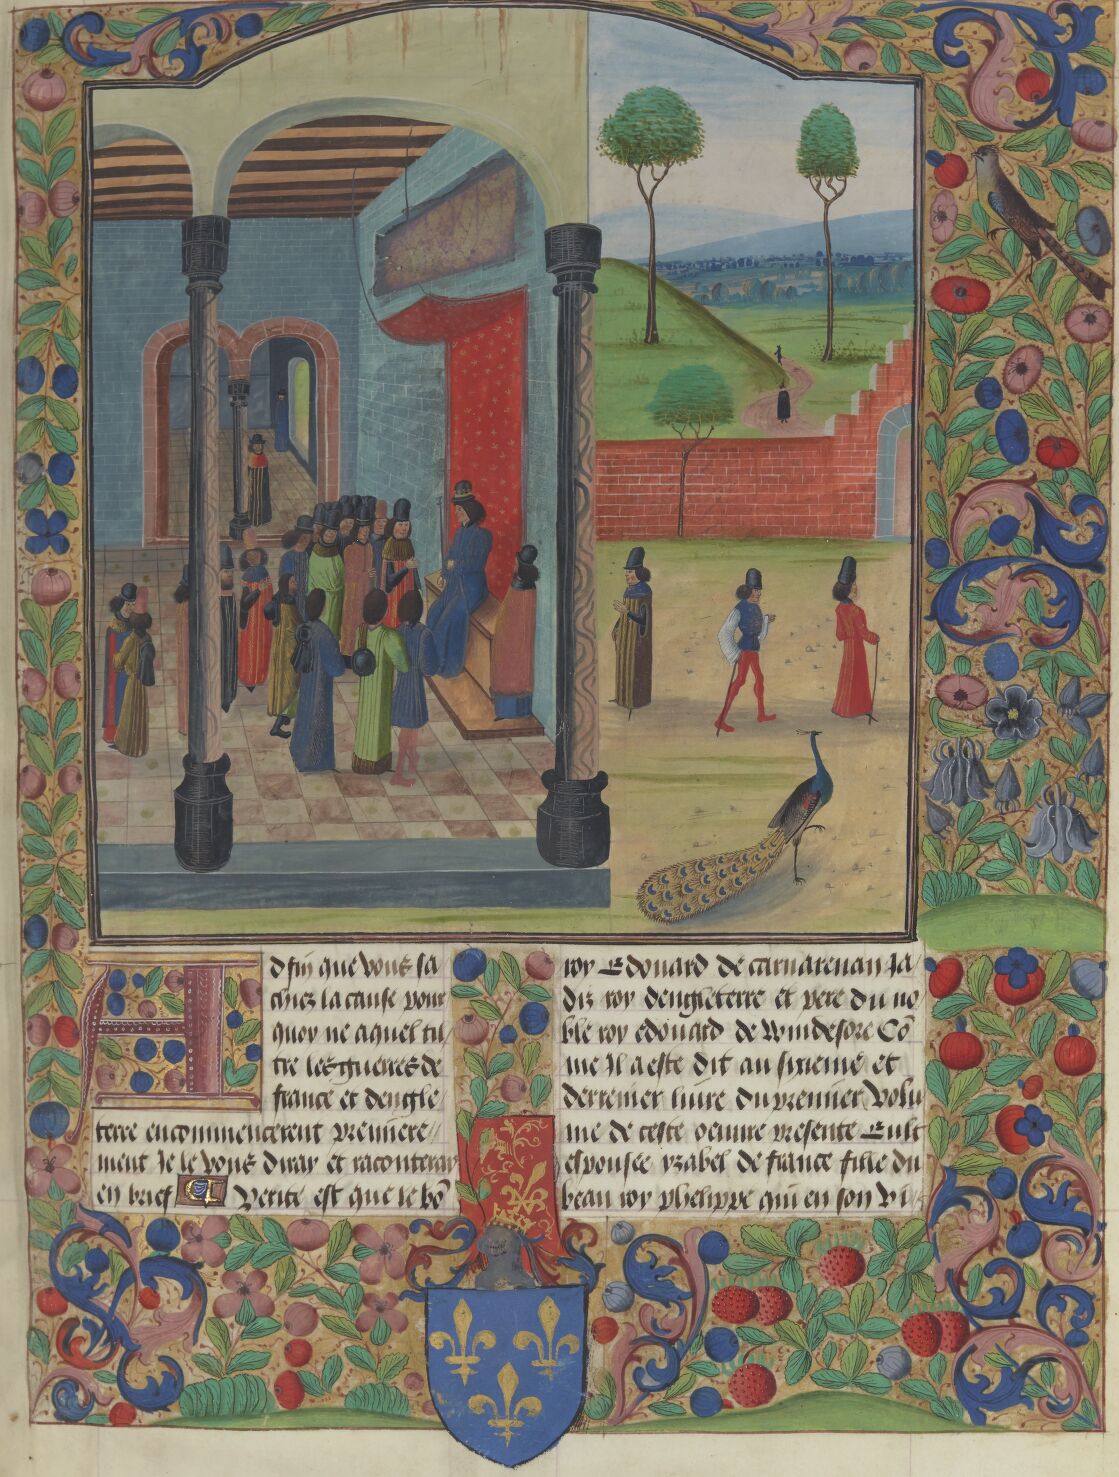 Adfin que vous sa
chiez la cause pour
quoy ne a quel til
tre les guerres de
france et dengle
terre encommencerent premiere
ment Je le vous diray et raconteray
en brief Verite est que le bo
roy Edouard de carnarenan Ja
diz roy dengleterre et pere du no
ble roy edouard de windesore Co
me Il a este dit au sixieme et
derrenier livre du premier volu
me de ceste oeuvre presente Eust
espousee ysabel de france fille du
beau roy phelippe qui en son vi